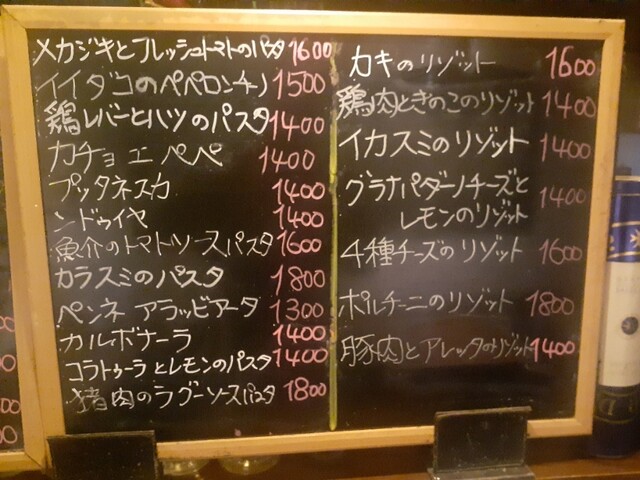 メカジキとフレッシュトマトのパスタ 1600
イイダコのペペロンチーノ 1500
鶏レバーとハツのパスタ 1400
カチョエペペ 1400
プッタネスカ 1400
ンドゥイヤ 1400
魚介のトマトソースパスタ 1600
カラスミのパスタ 1800
ペンネ アラッビアータ 1300
カルボナーラ 1400
コラトゥーラとレモンのパスタ 1400
猪肉のラグーソースパスタ 1800
カキのリゾット 1600
鶏肉ときのこのリゾット 1400
イカスミのリゾット 1400
グラナパダーノチーズと
レモンのリゾット 1400
4種チーズのリゾット 1600
ポルチーニのリゾット 1800
豚肉とアレッタのリゾット 1400